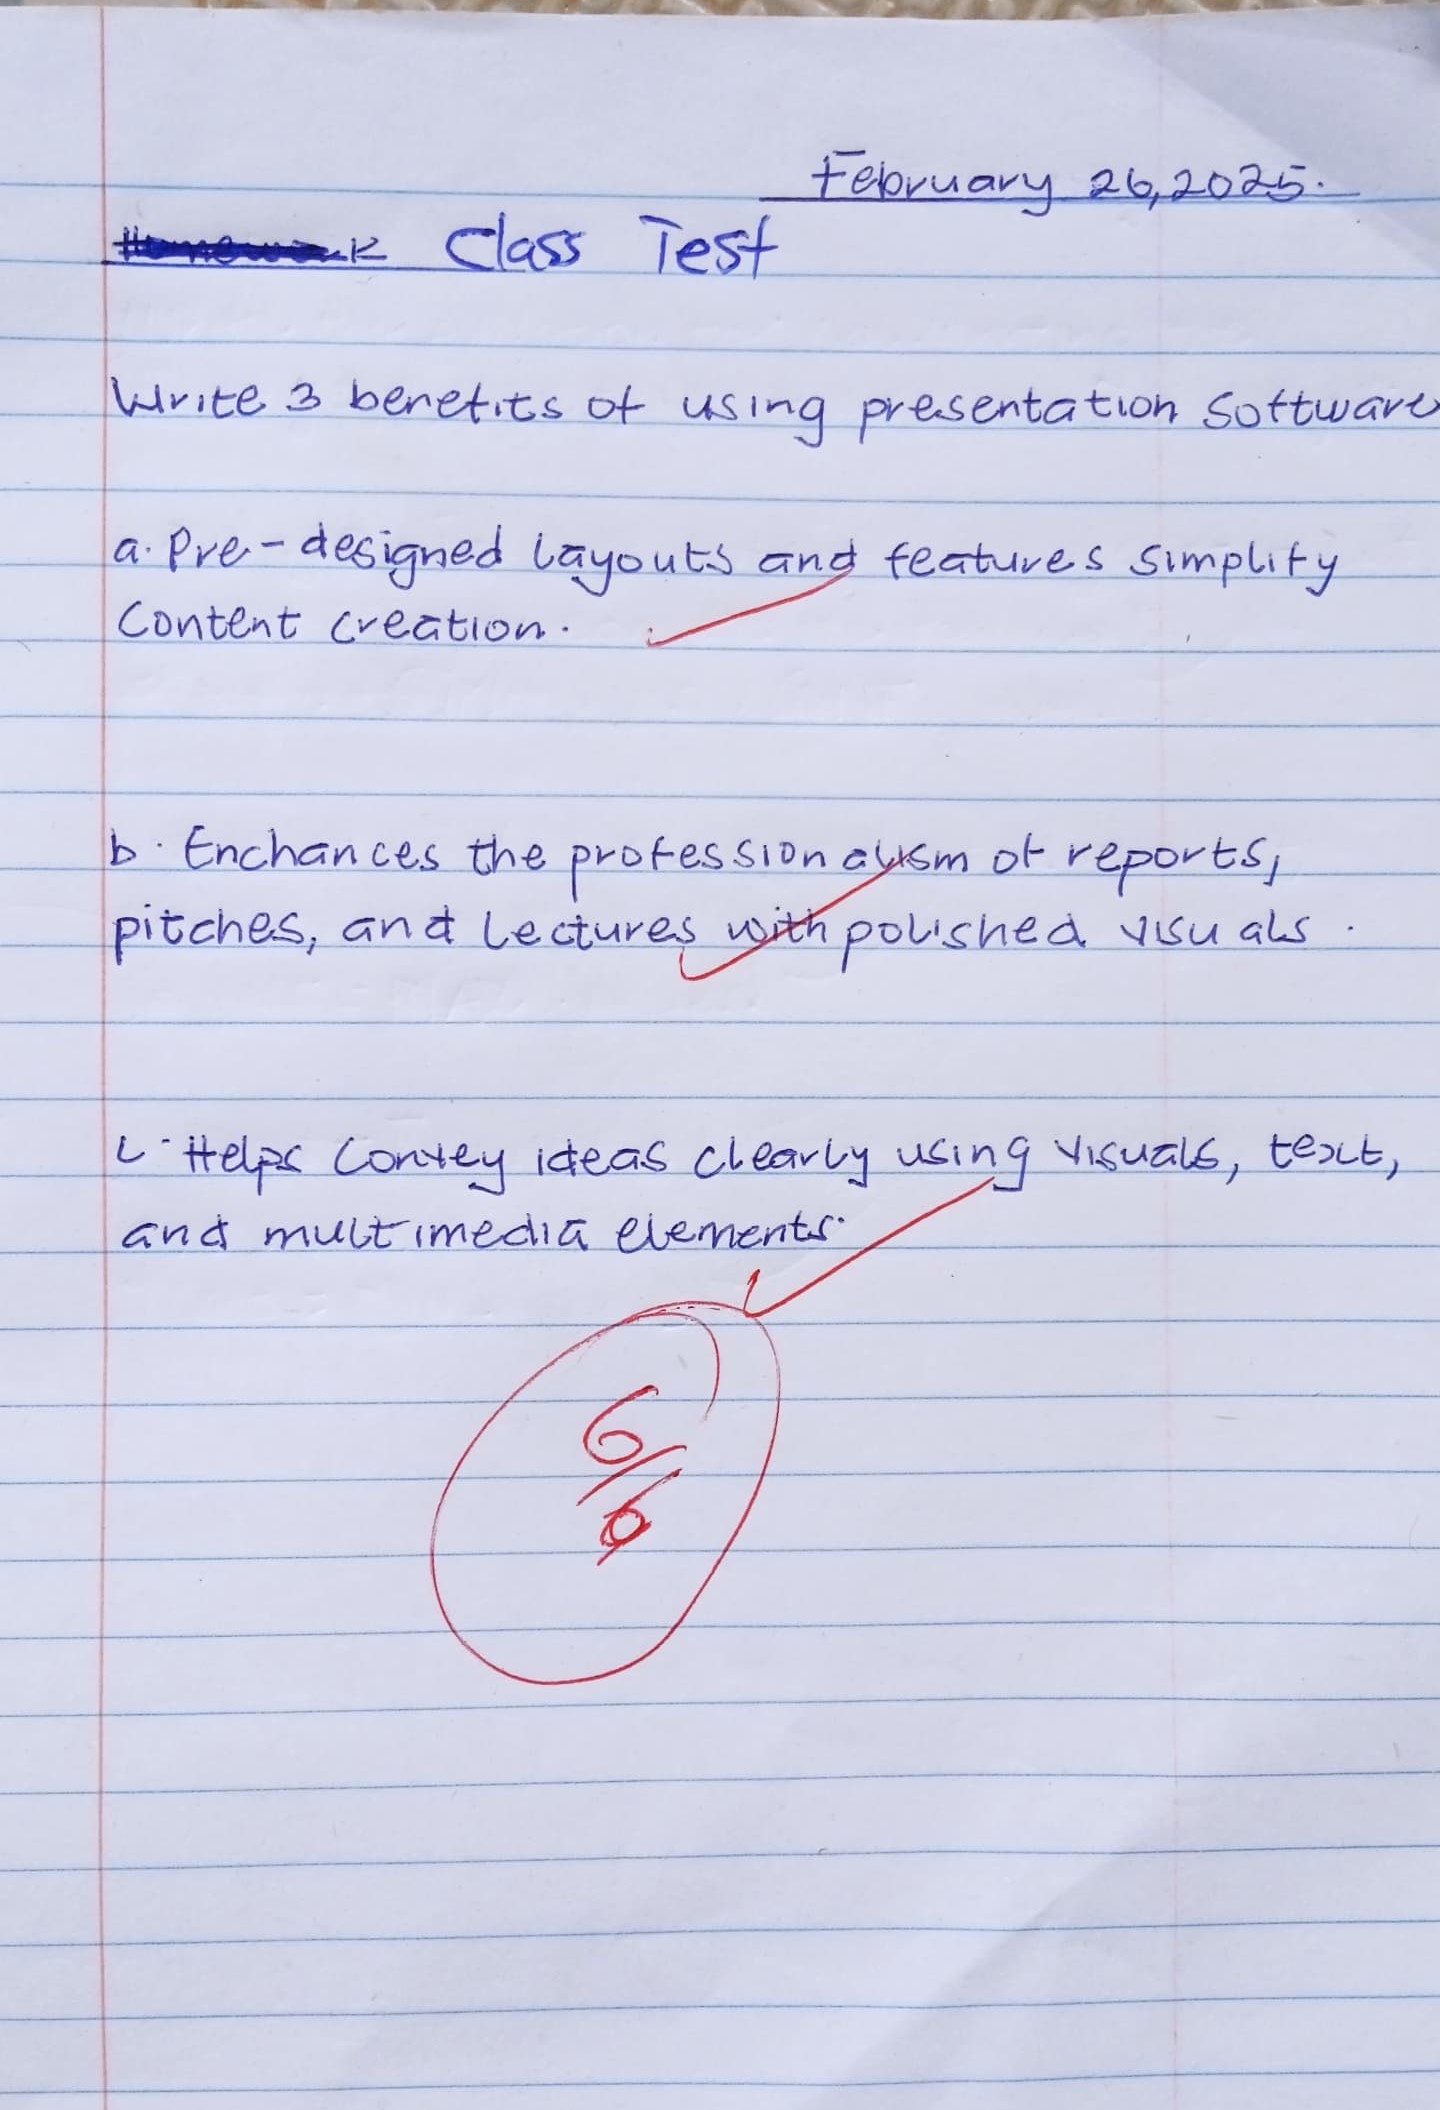 February 26, 2025.
Homework Class Test
Write 3 benefits of using presentation Software
a. Pre-designed layouts and features simplify
Content creation.
b. Enchances the professionalism of reports,
pitches, and Lectures with polished visuals.
c. Helps Convey ideas clearly using visuals, text,
and multimedia elements.
6/6